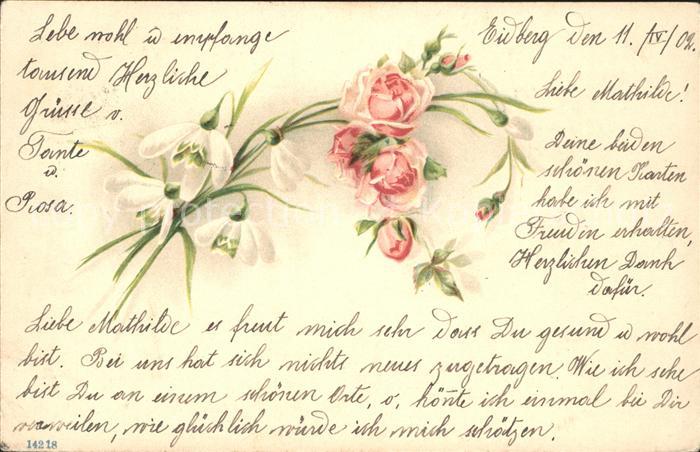 Eidberg den 11. /IV/ 02.
Liebe Mathilde!
Deine beiden
schönen Karten
habe ich mit
Freuden erhalten,
Herzlichen Dank
dafür.
Liebe Mathilde es freut mich sehr dass Du gesund u wohl
bist. Bei uns hat sich nichts neues zugetragen. Wie ich sehe
bist Du an einem schönen Orte, o, könte ich einmal bei Dir
verweilen, wie glücklich würde ich mich schätzen.
Lebe wohl u empfange
tausend Herzliche
Grüsse v.
Tante
u.
Rosa.
14218